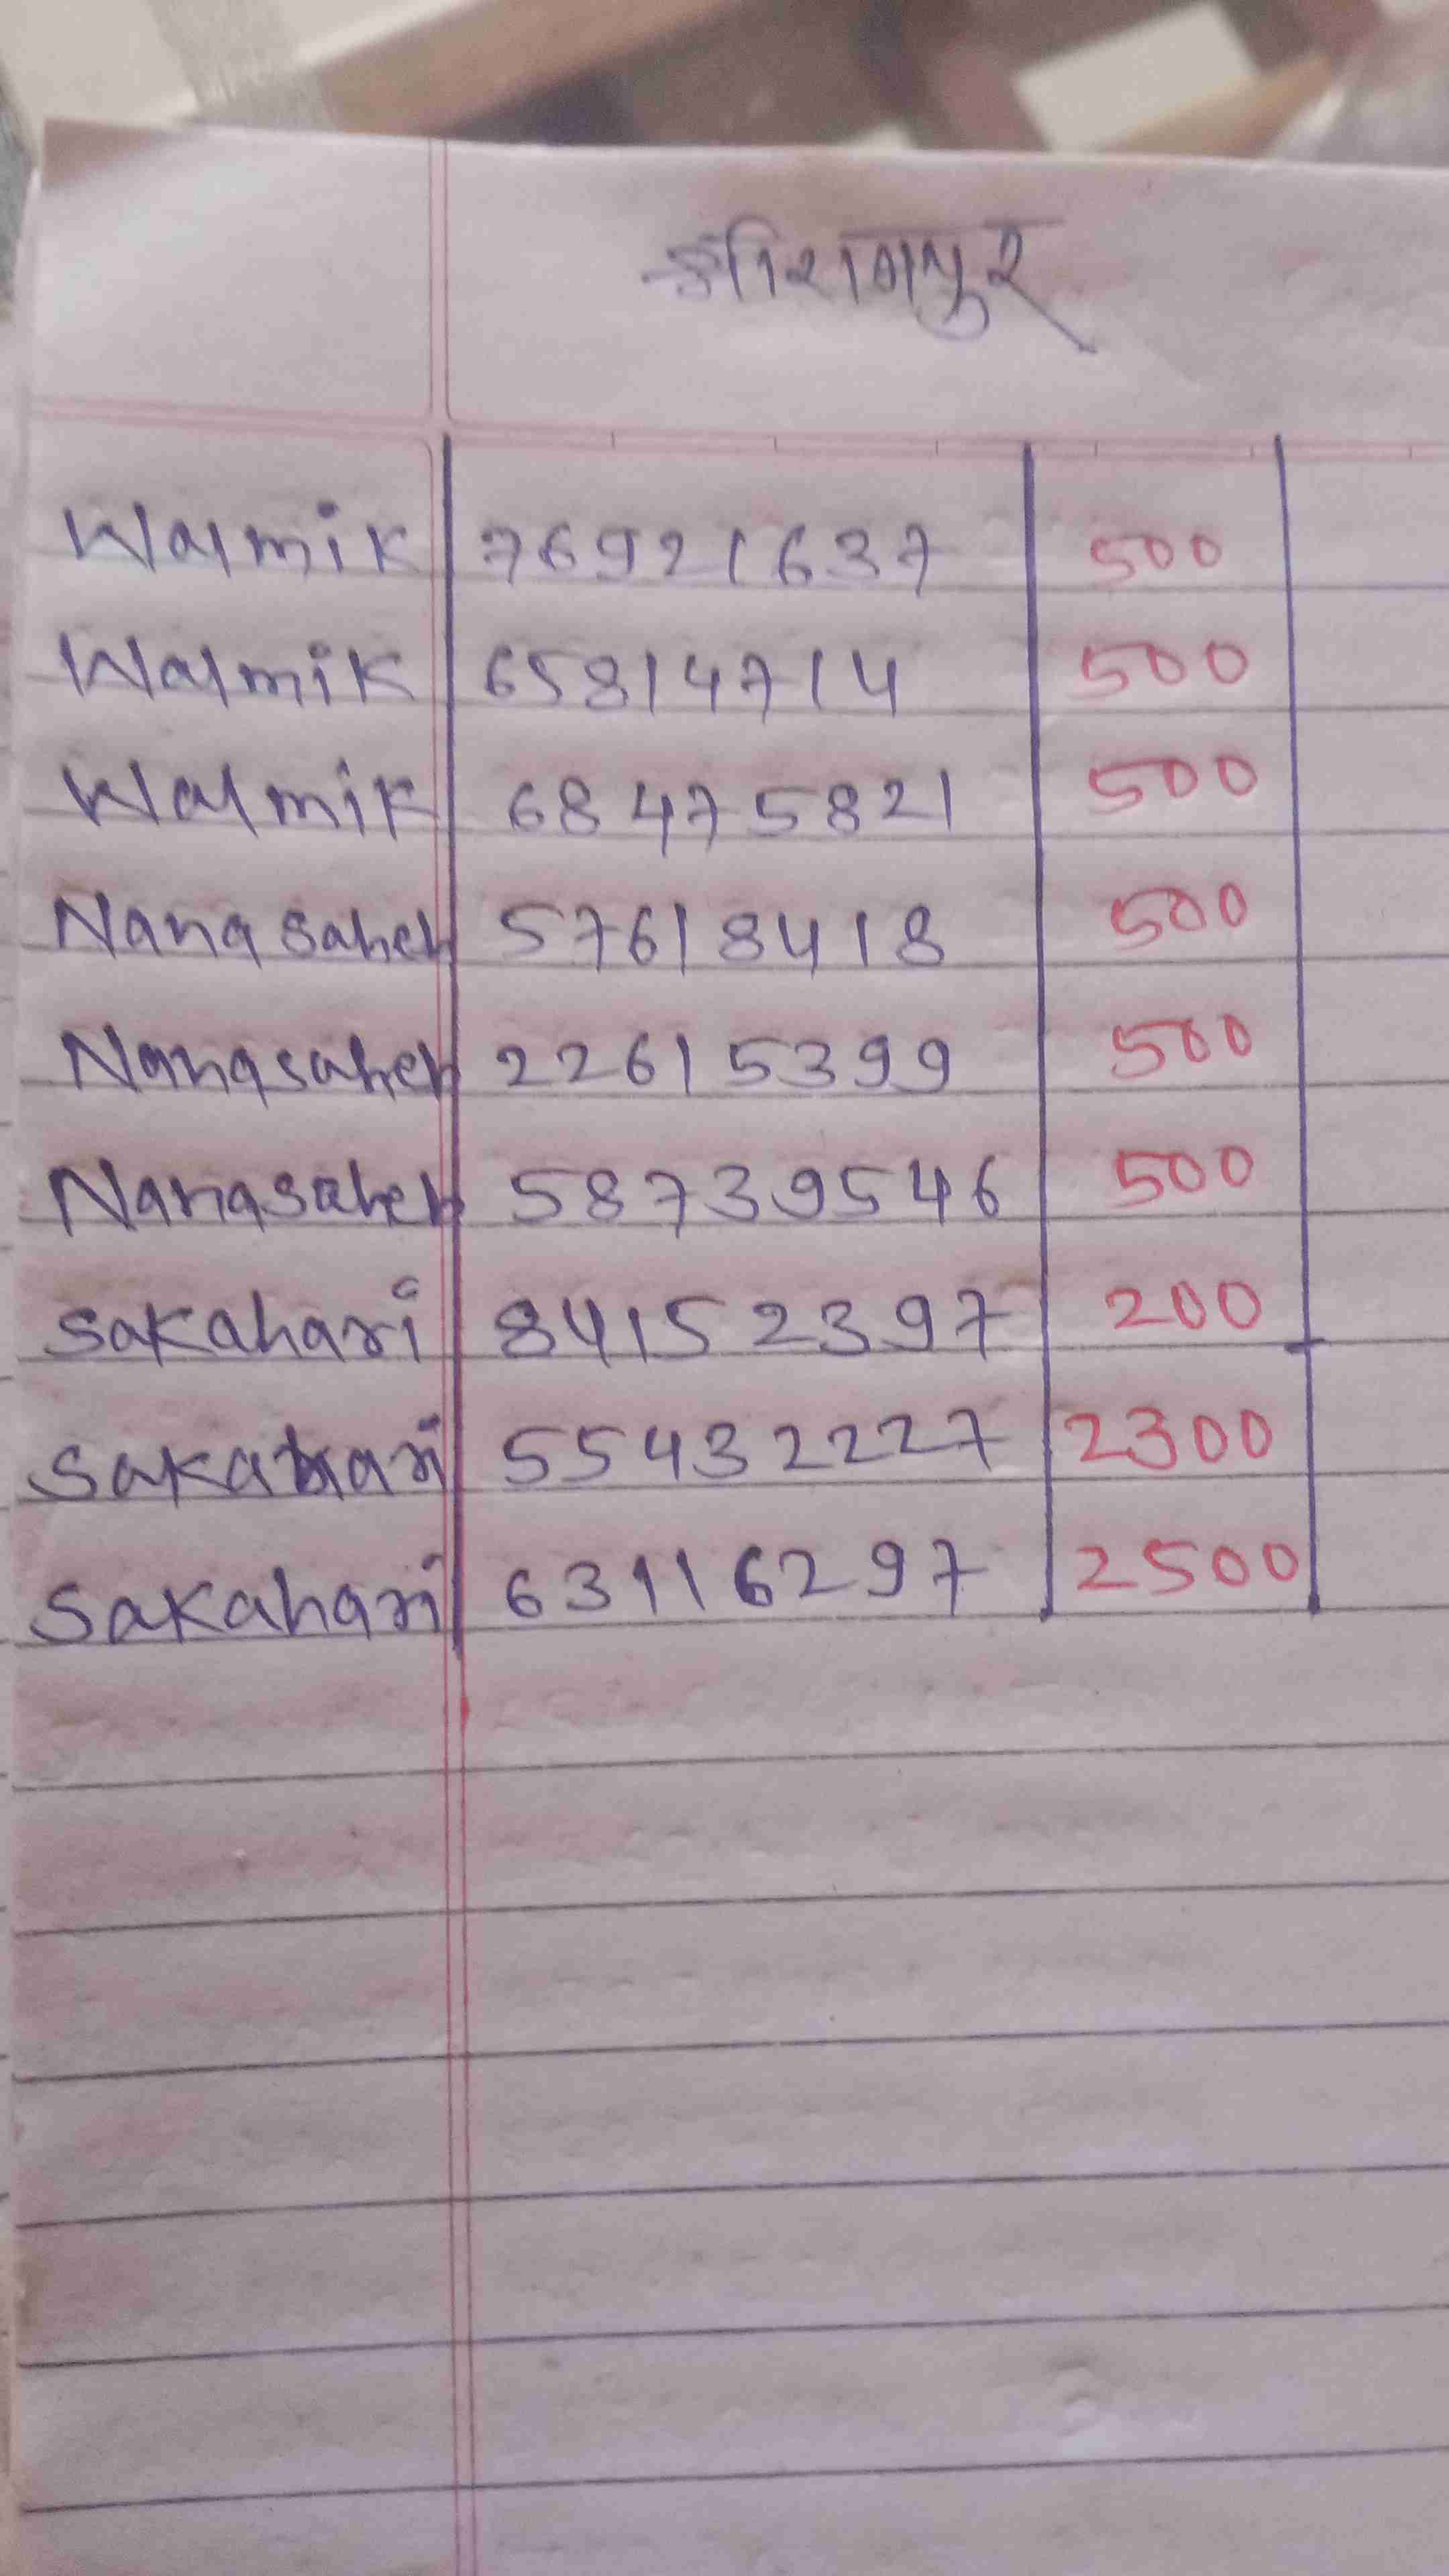 श्रीरामपुर
Walmik 76921637 500
Walmik 65814714 500
Walmik 68475821 500
Nanasaheb 57618418 500
Nanasaheb 22615399 500
Nanasaheb 58739546 500
Sakahari 84152397 200
Sakahari 55432227 2300
Sakahari 63116297 2500